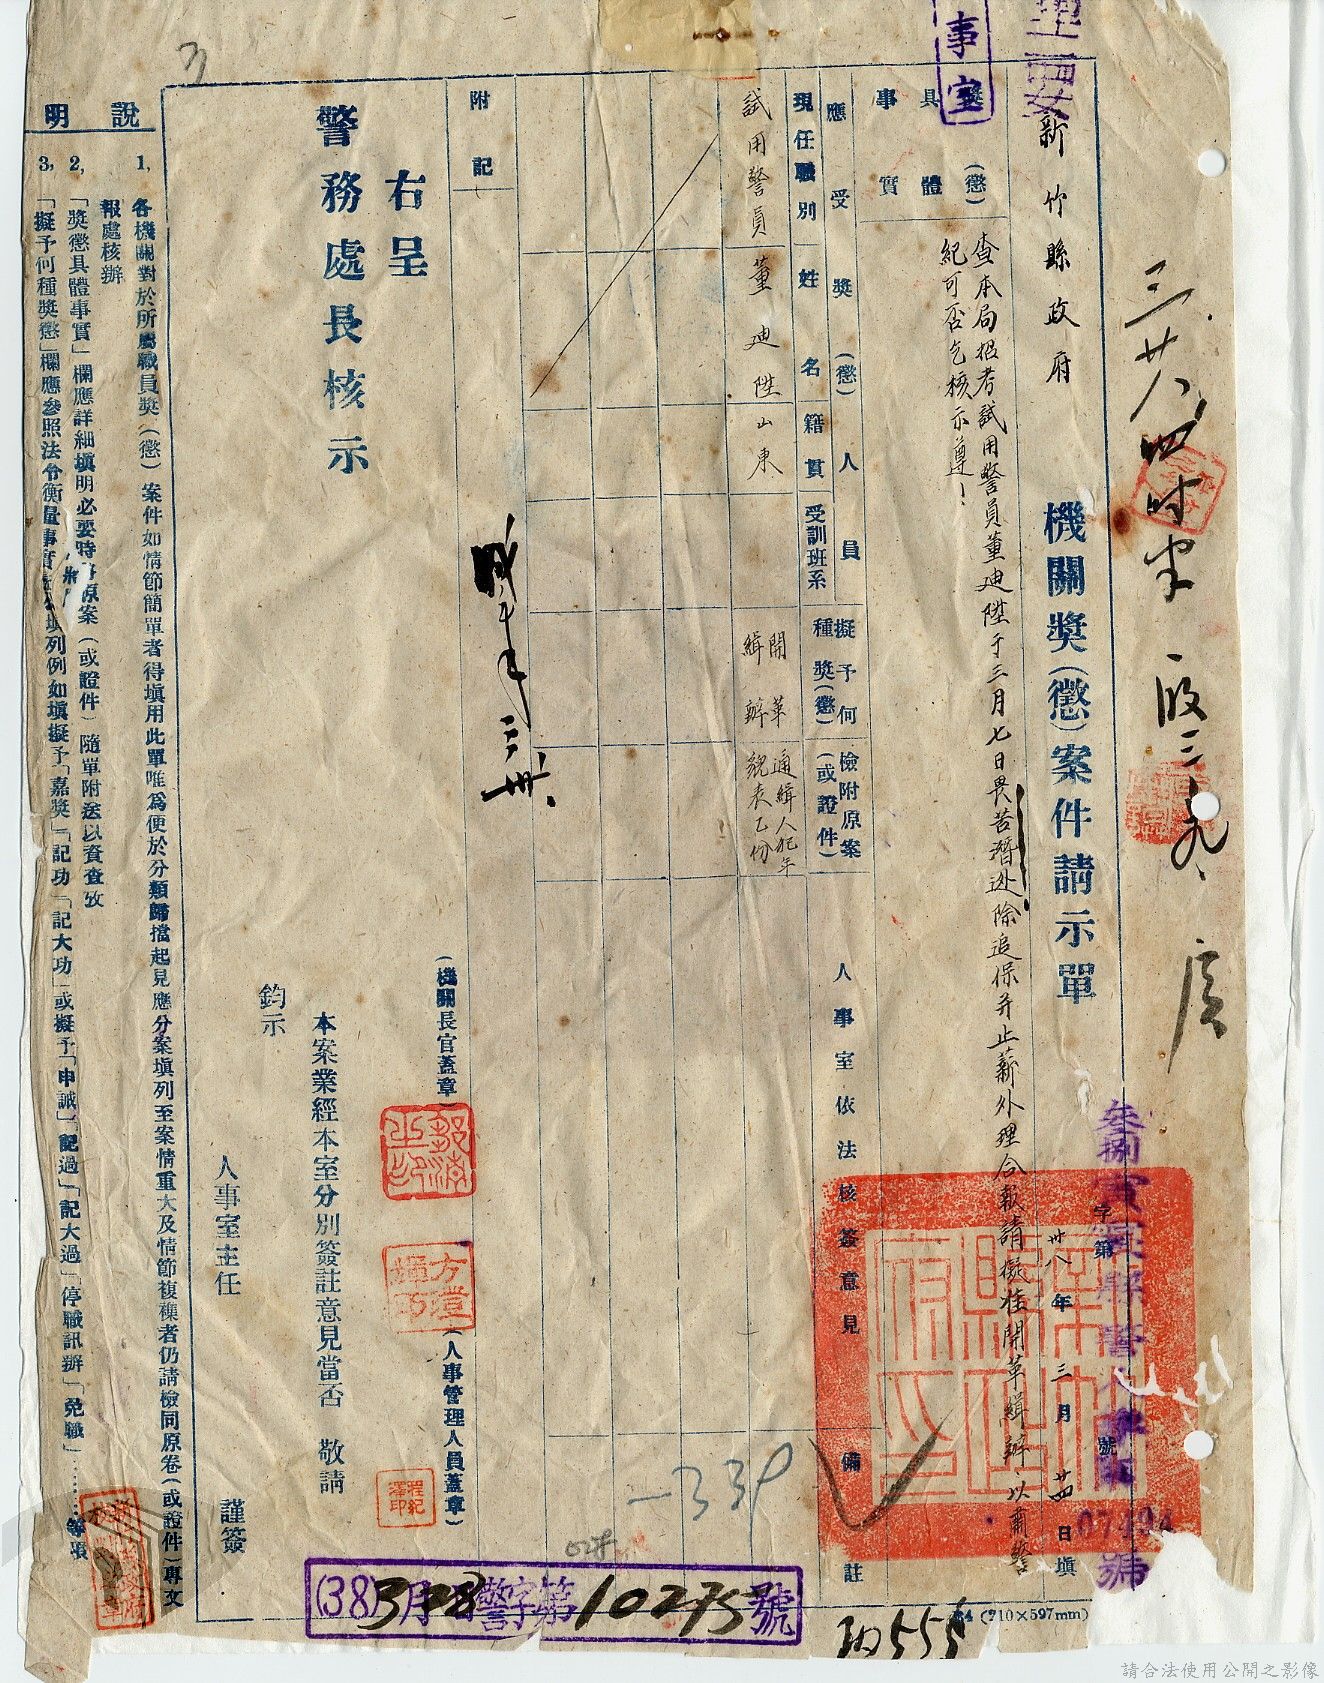 新竹縣政府
機關獎(懲)案件請示單
字第
號
卅八年三月廿四日填
07494
獎(懲)具體事實
查本局招考試用警員董迪陞于三月七日畏苦潛逃除追保并止薪外理合報請擬准開革緝辦以肅警
紀可否乞核示遵！
應受獎(懲)人員
擬予何種獎(懲)
檢附原案(或證件)
人事室依法核簽意見
備註
現任職別
姓名
籍貫
受訓班系
試用警員
董迪陞
山東
開革
緝辦
通緝人犯年
貌表乙份
附記
右呈
警務處長核示
(機關長官蓋章)
(人事管理人員蓋章)
本案業經本室分別簽註意見當否 敬請
鈞示
人事室主任
謹簽
說明
1,各機關對於所屬職員獎(懲)案件如情節簡單者得填用此單唯為便於分類歸檔起見應分案填列至案情重大及情節複襍者仍請檢同原卷(或證件)專文
報處核辦
2,「獎懲具體事實」欄應詳細填明必要時將原案(或證件)隨單附送以資查攷
3,「擬予何種獎懲」欄應參照法令衡量事實填列例如填擬予「嘉獎」「記功」「記大功」或擬予「申誡」「記過」「記大過」「停職訊辦」「免職」……等項
(38)3月 警字第10275號
B4 (710×597mm)
請合法使用公開之影像